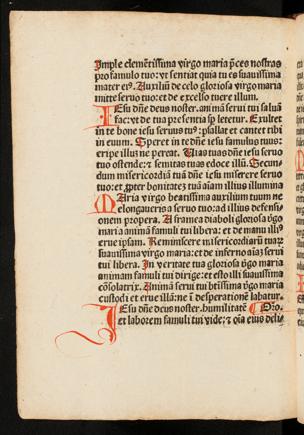 Imple clemētissima virgo maria p̄ces nostras
pro famulo tuo: vt sentiat quia tu es suauissima
mater eiꝰ. Auxiliū de celo gloriosa virgo maria
mitte seruo tuo: et de excelso tuere illum.
Iesu dn̄e deus noster. animā serui tui saluā
fac: vt de tua presentia sp̄ letetur. Exultet
in te bone iesu seruus tuꝰ: psallat et cantet tibi
in euum. Speret in te dn̄e iesu famulus tuus:
eripe illuz ne pereat. Vias tuas dn̄e iesu seruo
tuo ostende: ⁊ semitas tuas edoce illū. Secun-
dum misericordiā tuā dn̄e iesu miserere seruo
tuo: et ꝓpter bonitatē tuā aīam illius illumina
Maria virgo beatissima auxilium tuum ne
elongaueris a seruo tuo: ad illius defensi-
onem propera. A framea diaboli gloriosa v̄go
maria animā famuli tui libera: et de manu illiꝰ
erue ipsam. Reminiscere misericordiarū tuaꝝ
suauissima virgo maria: et de inferno aīaz serui
tui libera. In veritate tua gloriosa v̄go maria
animam famuli tui dirige: et esto illi suauissima
cōsolatrix. Animā serui tui btīssima v̄go maria
custodi et erue illā: ne ī desperationē labatur.
Iesu dn̄e deus noster. humilitatē
et laborem famuli tui vide: ⁊ oīa eius deli-